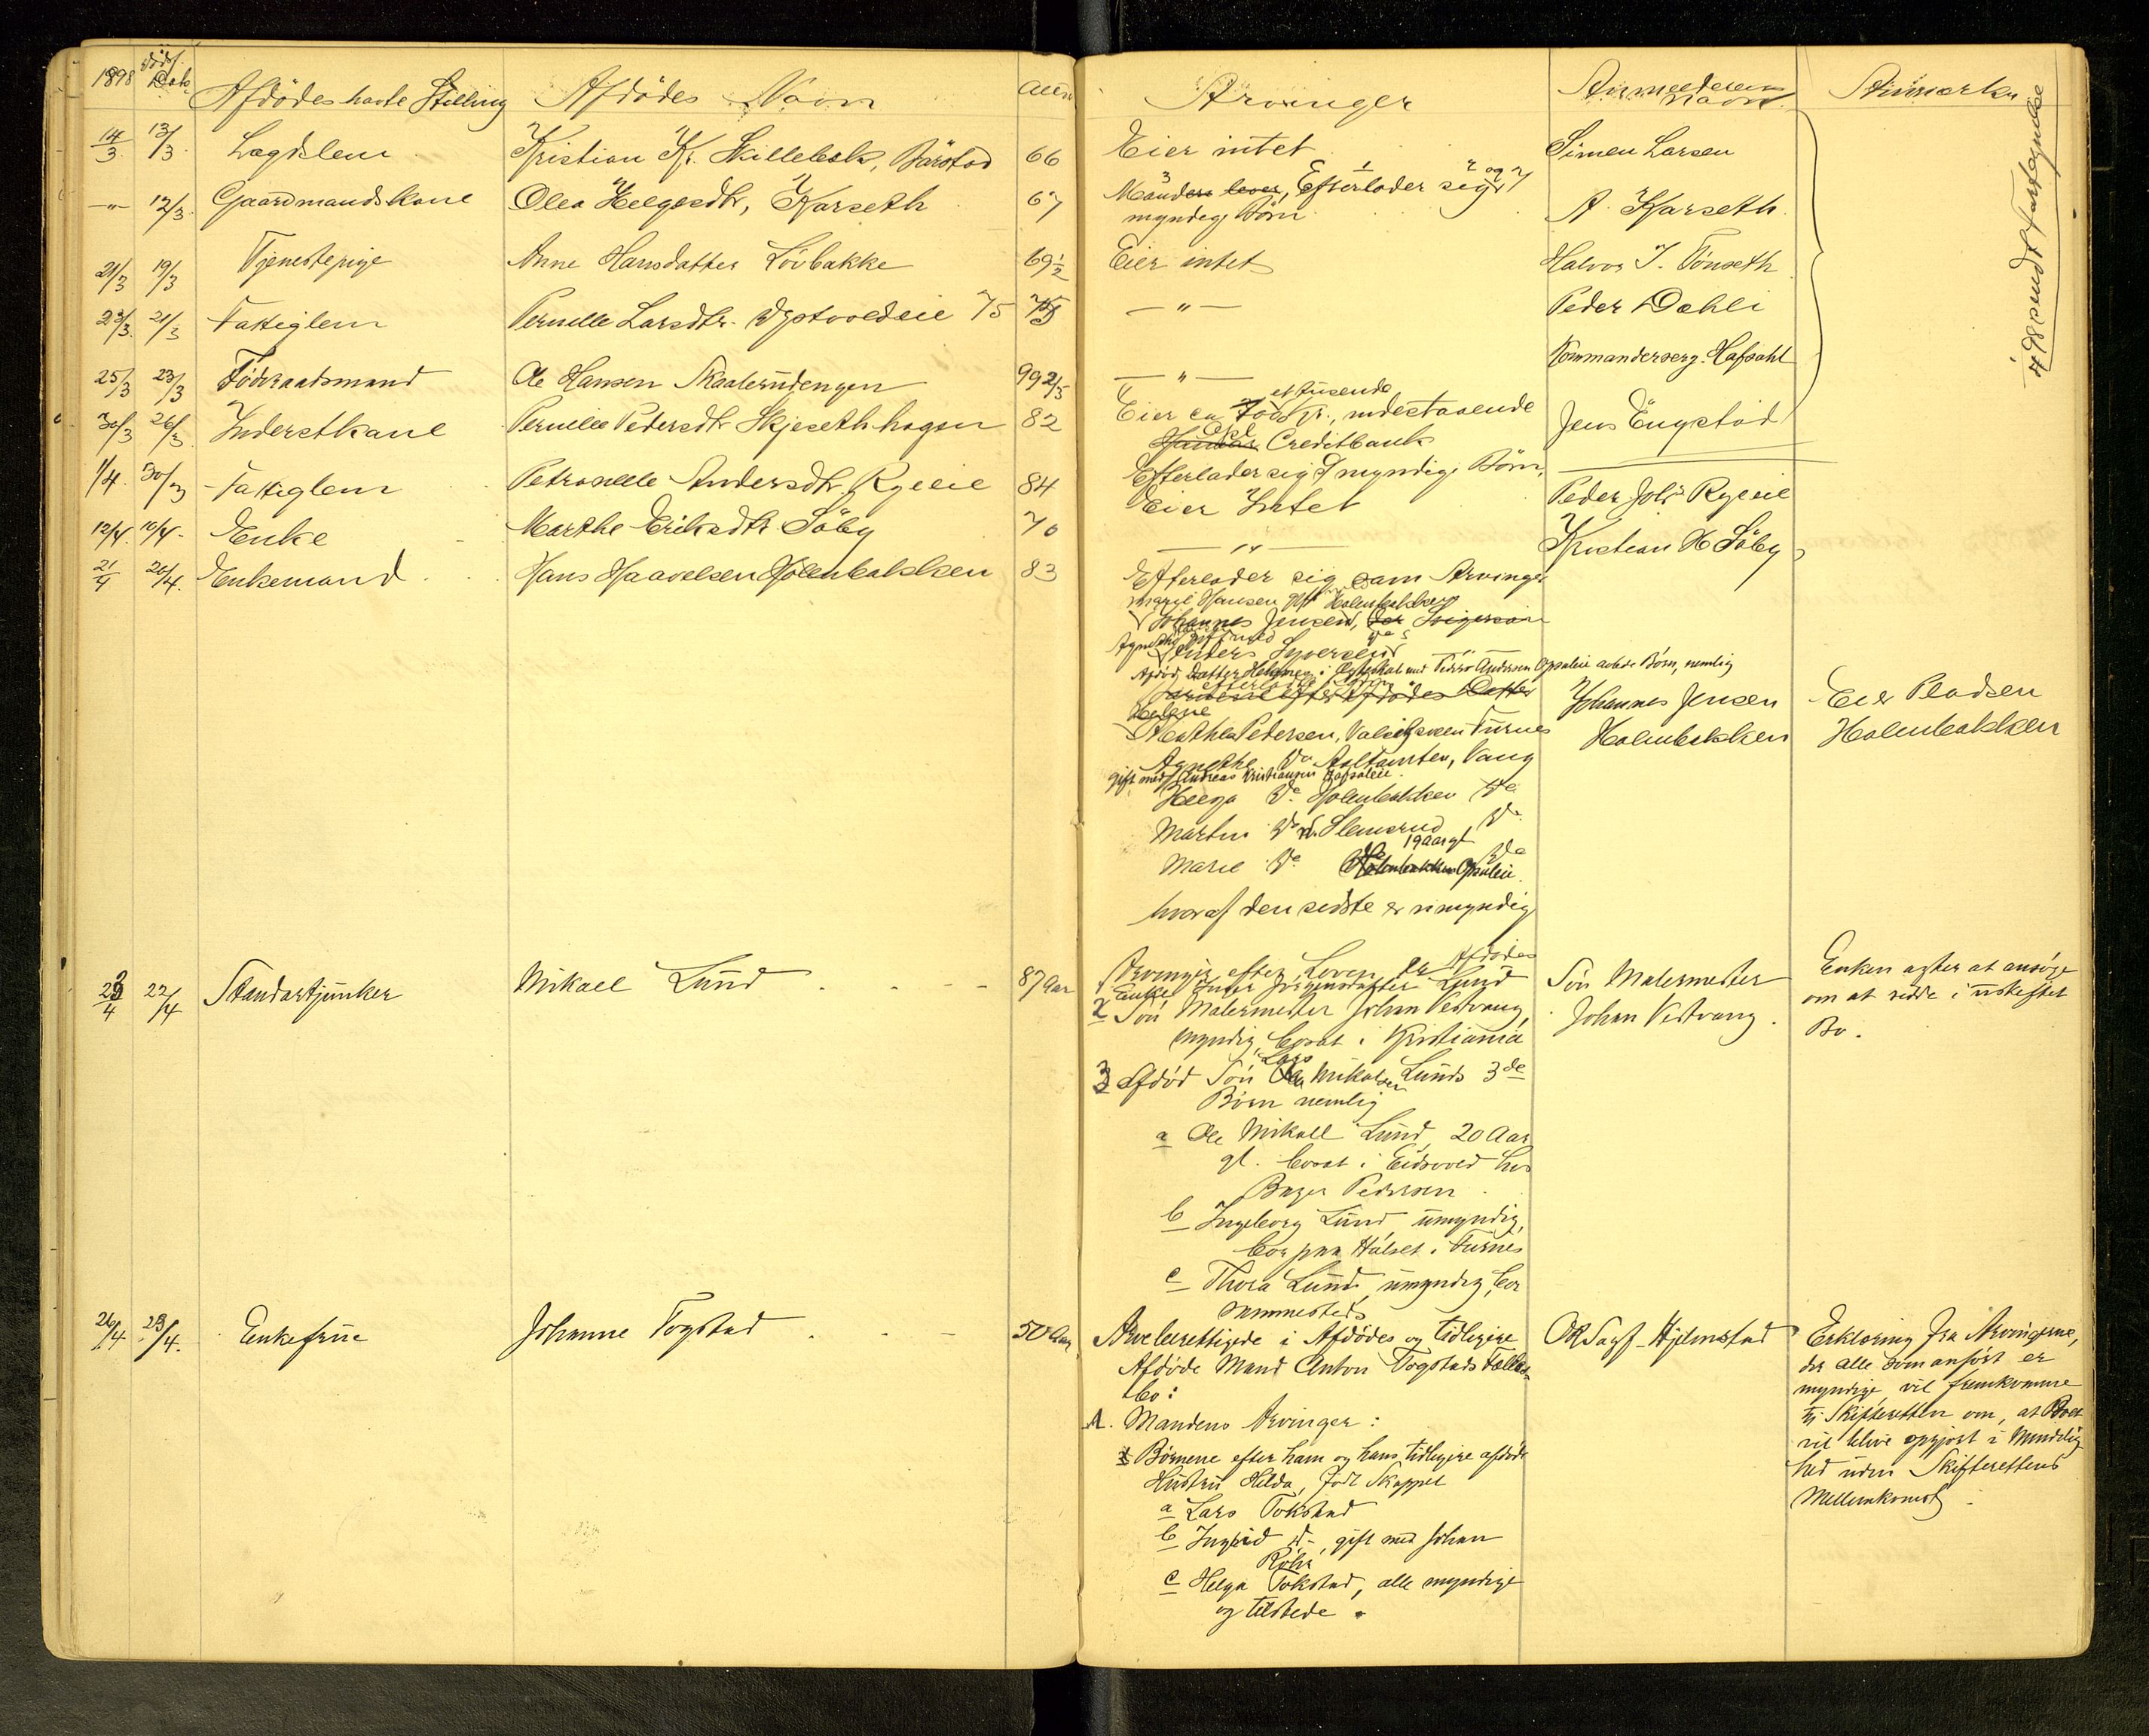 1898 Dödsf. Dat. Afdödes havte Stilling Afdödes Navn Alder Arvinger Anmelderens Navn Anmærkn.
14/3 13/3 Lægdslem Kristian Kr. Skillebæk, 66 Eier intet Simen Larsen
—"— 12/3 Gaardmandskone Olea Helgesdtr, Karseth 67 Manden lever, Efterlader sig og 7
myndige Börn A. Karseth
21/3 19/3 Tjenestepige Anne Hansdatter Lövbakke 69½ Eier intet Halvor J. Tönseth
23/3 21/3 Fattiglem Pernelle Larsdtr. 75 75 —"— Peder Dahli
25/3 23/3 Föderaadsmand Ole Hansen Skaalerudengen 99 2/3 —"— Kommandersergt. Hafsahl
30/3 26/3 Inderstkone Pernelle Pedersdtr Skjesethhagen 82 Eier ca et tusende Kr., indestaaende
Creditbank Jens Engstad
Efterlader sig myndige Börn,
1/4 30/3 Fattiglem Petronelle Andersdtr. Ryeeie 84 Eier Intet Peder Johs Ryeeie
12/4 10/4 Enke Marthe Eriksdtr Söby 70 —"— Kristian H Söby
21/4 20/4 Enkemand Hans Haavelsen Holenbakken 83 Efterlader sig som Arvinger
Johannes Jensen, Svigersön
Anders Syversen
Afdöd Datter Helene i Ægteskab med Peder Andersen Opsaleie avlede Börn, nemlig
efterladte Börn
Afdödes Datter
Helene
Mathea Pedersen, Furnes
Agnethe Do Vang
gift med Andreas Kristiansen
Helga Do. Holenbakken Do
Martin Do Slemsrud Do
19 aar gl
Marie Do Opsaleie Do
hvoraf den sidste er umyndig
Johannes Jensen
Holenbakken
Eier Pladsen
Holenbakken
23/4 22/4 Standartjunker Mikael Lund 87 Aar
Arvinger efter Loven er Afdödes
1 Enke Inger Jörgensdatter Lund
2 Sön Malermester Johan Vestvang,
myndig, bosat i Kristiania
3 Afdöd Sön Lars Mikalsen Lunds 3de
Börn nemlig
a Ole Mikael Lund, 20 Aar
gl. bosat i Eidsvold hos
Bager Pedersen
b Ingeborg Lund umyndig,
bor paa Hälset i Furnes
c Thora Lund umyndig, bor
sammesteds
Sön Malermester
Johan Vestvang.
Enken agter at ansöge
om at sidde i uskiftet
Bo.
26/4 23/4 Enkefrue Johanne Togstad 50 Aar
Arveberettigede i Afdödes og tidligere
Afdöde Mand Anton Togstads Fælles-
bo:
A. Mandens Arvinger:
Börnene efter ham og hans tidligere afdöde
Hustru Hilda, födt Skappel
a Lars Tokstad
b Ingrid d-, gift med Johan
Röhr
c Helga Tokstad, alle myndige
og tilstede.
Hjelmstad
Erklæring fra Arvingerne,
der alle som anfört er
myndige vil fremkomme
til Skifteretten om, at Boet
vil blive opgjort i Mindelig-
hed uden Skifterettens
Mellemkomst.
4/98 sendt Fortegnelse